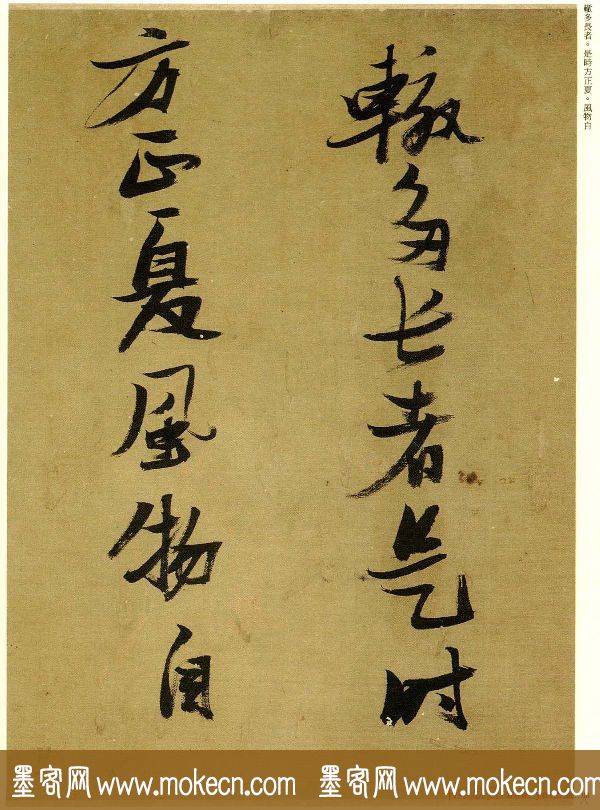 轍多長者是時
方正夏風物自
轍多長者。是時方正夏。風物自
墨客网 www.mokecn.com 墨客网 www.mokecn.com